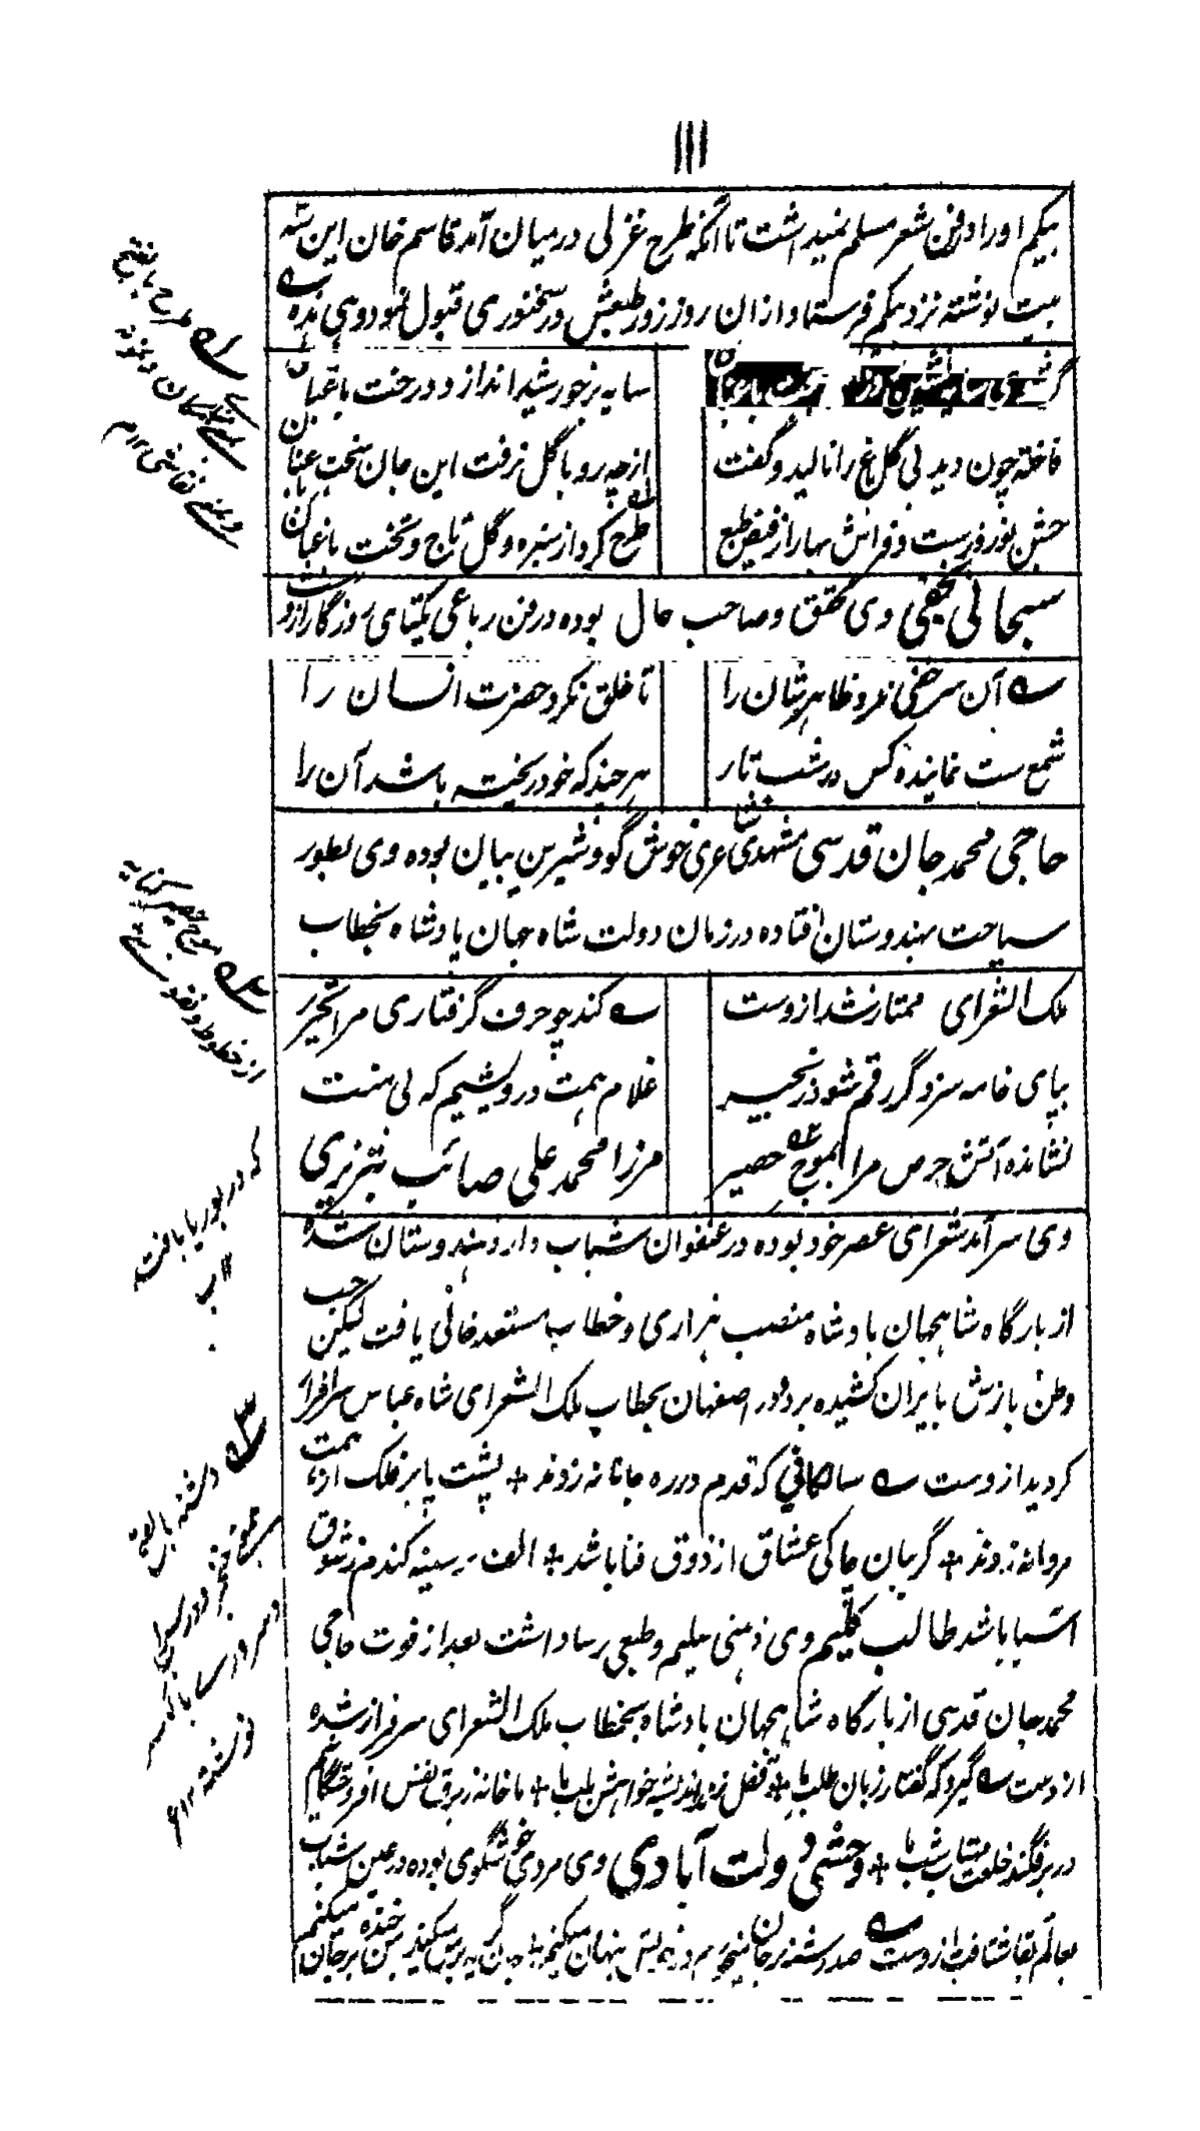 ۱۱۱
بیگم او را در فن شعر مسلم نمیداشت تا آنکه طرح غزلی در میان آمد قاسم خان این سه
بیت نوشته نزد بیگم فرستاد از ان روز زور طبعش در سخنوری قبول نمود وهی هذه
سایه بر خورشید اندازد درخت باغبان
فاخته چون دید بی گل باغ را نالید و گفت
از چه رو با گل نرفت این جان سخت باغبان
جشن نوروزست و فراش بهار از فیض طبع
طرح کرد از سبزه و گل تاج و تخت باغبان
سبحانی نجفی وی محقق و صاحب حال بوده در فن رباعی یکتای روزگار ازوست
آن سر خفی نمود ظاهر شان را
تا خلق نکرد حضرت انسان را
شمع ست نماینده کس در شب تار
هر چند که خود ریخته باشد آن را
حاجی محمد جان قدسی مشهدی شاعری خوش گو و شیرین بیان بوده وی بطور
سیاحت بهندوستان افتاده در زمان دولت شاه جهان بادشاه بخطاب
ملک الشعرای ممتاز شد ازوست
کند چو حرف گرفتاری مرا تحریر
بپای خامه سزد گر رقم شود زنجیر
غلام همت درویشیم که بی منت
نشانده آتش حرص مرا بموج حصیر
مرزا محمد علی صائب تبریزی
وی سر آمد شعرای عصر خود بوده در عنفوان شباب وارد هندوستان شده
از بارگاه شاهجهان بادشاه منصب هزاری و خطاب مستعد خانی یافت لیکن حب
وطن بازش بایران کشیده برد و در اصفهان بخطاب ملک الشعرای شاه عباس سرافراز
گردید ازوست سالکانی که قدم در ره جانانه زدند + پشت پا بر فلک از همت
مردانه زدند + گریبان چاکی عشاق از ذوق فنا باشد + الف بر سینه گندم ز شوق
آسیا باشد طالب کلیم وی ذهنی سلیم و طبعی رسا داشت بعد از فوت حاجی
محمد جان قدسی از بارگاه شاهجهان بادشاه بخطاب ملک الشعرای سرفراز شده
ازوست گیرد که گفتار زبان طلب ما + قفل زند اندیشه خواهش بلب ما + ما خانه ز برق نفس افروخته‌ایم
در بر فگند خلعت مهتاب شب ما + وحشی دولت آبادی وی مردی خوشگوی بوده در عین شباب
بعالم بقا شتافت ازوست صد دشنه بر جان میخورم وز بیم پنهان میکنم + جان گریه بر من میکند من خنده بر جان میکنم
۱ه طرح بالفتح
۲ه موج حصیر کنایه
از خطوط و نقوش ست
که در بوریا بافت
۱۲ ب
۳ه دشنه بالفتح
بمعنی خنجر
نوشته ۱۲